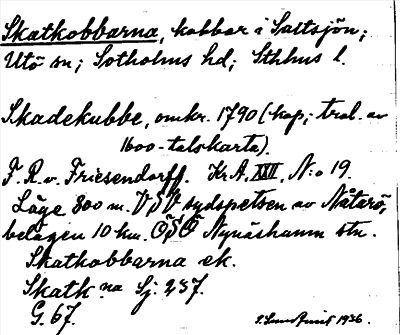 Skatkobbarna, kobbar i Saltsjön;
Utö sn; Sotholms hd; Sthlms l.
Skadekubbe, omkr. 1790 (kop; trol. av
1600-talskarta).
F. R. v. Friesendorff. Kr.A, XIII, N:o 19.
Läge 800 m. VSV sydspetsen av Nåtarö,
belägen 10 km. OSO Nynäshamn stn.
Skatkobbarna ek.
Skatk:na Sj: 237.
G. 67.
1936.